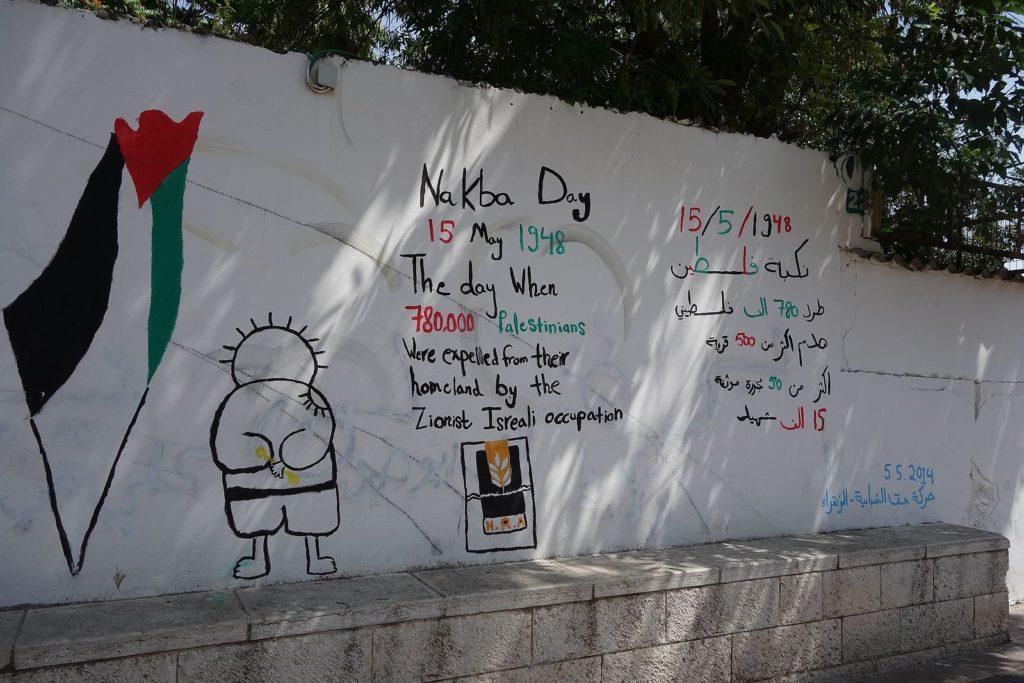 Nakba Day
15 May 1948
The day When
780.000 Palestinians
Were expelled from their
homeland by the
Zionist Isreali occupation
H.R.A
15/5/1948
نكبة فلسطين
طرد 780 الف فلسطيني
هدم اكثر من 500 قرية
اكثر من 50 مجزرة موثقة
15 الف شهيد
5.5.2014
حركة حقنا الشبابية - الزهراء